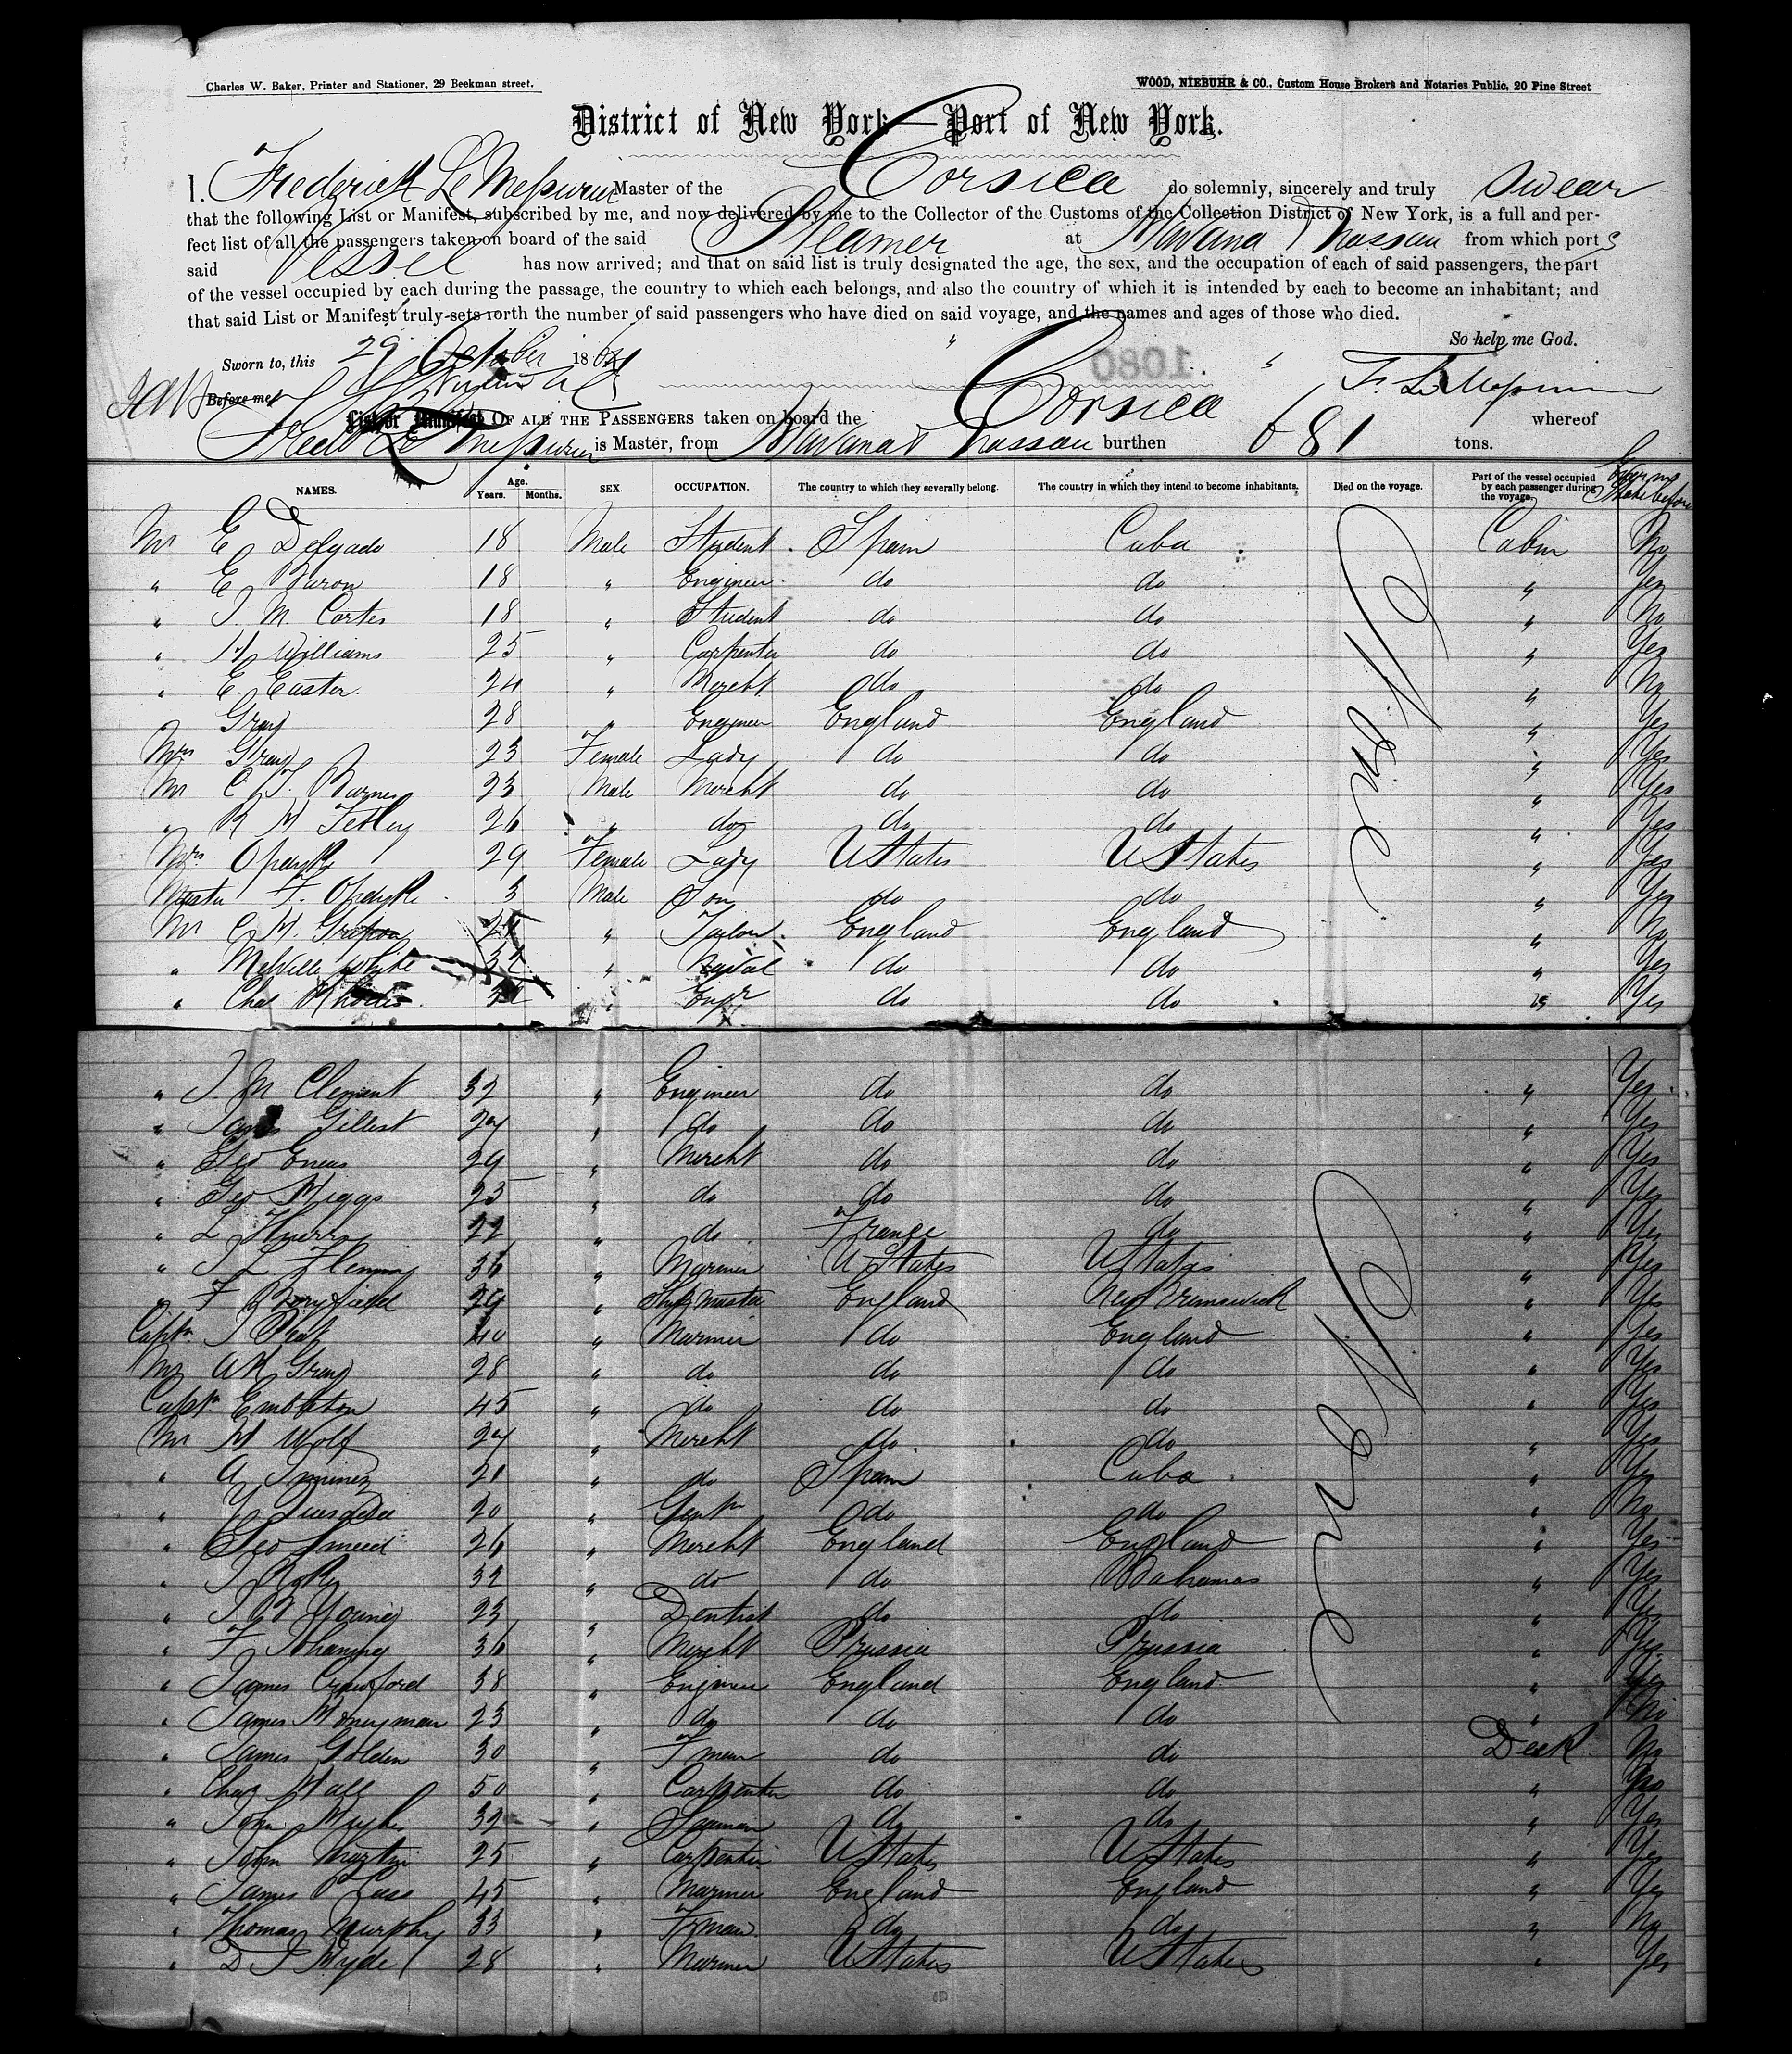 Charles W. Baker, Printer and Stationer, 29 Beekman street.
WOOD, NIEBUHR & CO., Custom House Brokers and Notaries Public, 20 Pine Street
District of New York—Port of New York.
I. Frederick Le Mesurier Master of the Corsica do solemnly, sincerely and truly swear
that the following List or Manifest, subscribed by me, and now delivered by me to the Collector of the Customs of the Collection District of New York, is a full and per-
fect list of all the passengers taken on board of the said Steamer at Havana & Nassau from which ports
said Vessel has now arrived; and that on said list is truly designated the age, the sex, and the occupation of each of said passengers, the part
of the vessel occupied by each during the passage, the country to which each belongs, and also the country of which it is intended by each to become an inhabitant; and
that said List or Manifest truly sets forth the number of said passengers who have died on said voyage, and the names and ages of those who died.
So help me God.
Sworn to, this 29 October 1864
1080
F. Le Mesurier
Before me,
List or Manifest OF ALL THE PASSENGERS taken on board the Corsica whereof
Fredk Le Mesurier is Master, from Havana & Nassau burthen 681 tons.
NAMES. Age. Years. Months. SEX. OCCUPATION. The country to which they severally belong. The country in which they intend to become inhabitants. Died on the voyage. Part of the vessel occupied by each passenger during the voyage.
Mr E Delgado 18 Male Student Spain Cuba Cabin No
" E Baron 18 " Engineer do do " Yes
" J. M. Cortes 18 " Student do do " No
" H Williams 25 " Carpenter do do " Yes
" E. Easter 24 " Mercht do do " No
Gray 28 " Engineer England England " Yes
Mrs Gray 23 Female Lady do do " Yes
Mr C. T. Barnes 23 Male Mercht do do " Yes
" R H Tetley 26 " do do do " Yes
Mrs Opdyke 29 Female Lady U States U States " Yes
Master F. Opdyke 3 Male Son do do " Yes
Mr C. H. " Tailor England England " No
" Melville White 32 " Naval do do " Yes
" Chas Rhodes " Engr do do " Yes
" J. M Clement 32 " Engineer do do " Yes
" James Gillest 27 " do do do " Yes
" Geo Eneas 29 " Mercht do do " Yes
" Geo Higgs 25 " do do do " Yes
" L 22 " do France do " Yes
" J L Fleming 36 " Mariner U States U States " Yes
" F 29 " Ship Master England New Brunswick " Yes
Captn J 40 " Mariner do England " Yes
Mr A H Gray 28 " do do do " Yes
Captn Embleton 45 " do do do " Yes
Mr H Wolf 27 " Mercht do do " Yes
" A Jiminez 21 " do Spain Cuba " Yes
" Y Quesada 20 " Gentn do do " No
" Geo Smeed 26 " Mercht England England " Yes
" J 32 " do do Bahamas " Yes
" J B Young 23 " Dentist do do " Yes
" F 36 " Mercht Prussia Prussia " Yes
" James Crawford 38 " Engineer England England " Yes
" James Honeyman 23 " do do do " No
" James Golden 30 " F man do do Deck No
" Chas Hall 50 " Carpenter do do " No
" John 32 " Seaman do do " Yes
" John Martin 25 " Carpenter U States U States " Yes
" James 45 " Mariner England England " Yes
" Thomas Murphy 33 " Frman do do " No
" D J Hyde 28 " Mariner U States U States " Yes